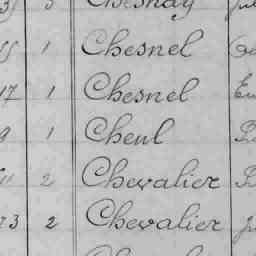 3 Chesnay
1 Chesnel
17 1 Chesnel
9 1 Cheul
2 Chevalier
73 2 Chevalier